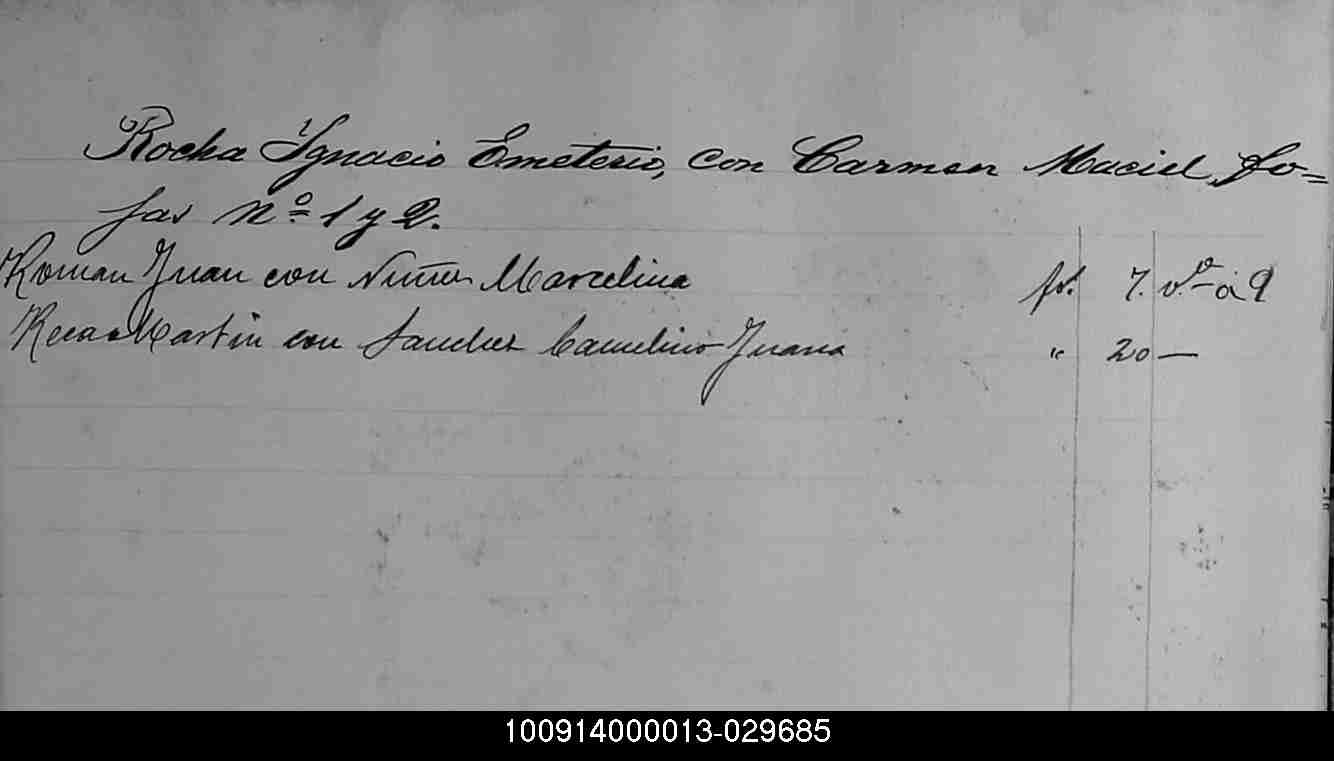 Rocha Ignacio Emeterio, con Carmen Maciel, fo=
jas Nº 1 y 2.
Roman Juan con Nuñes Marcelina fs. 7. vº - á 9
Martin con Sanchez Camelino Juana " 20 —
100914000013-029685